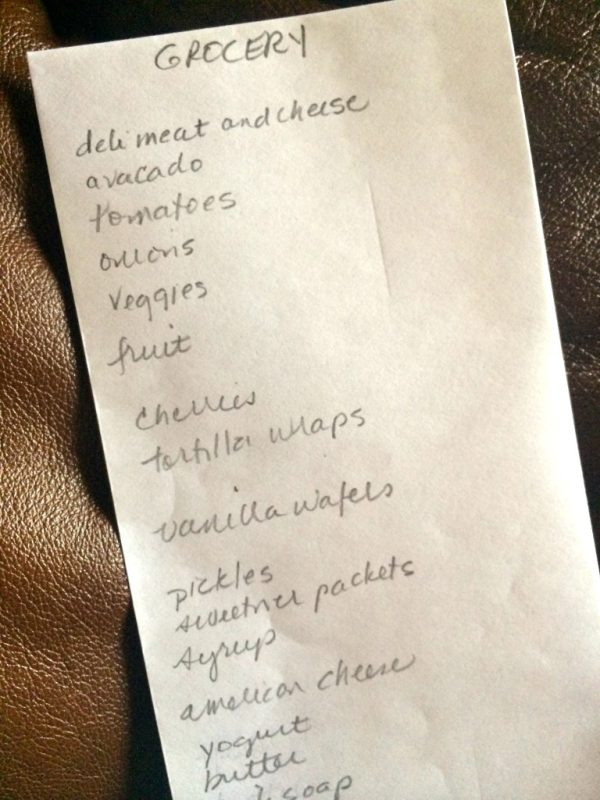 GROCERY
deli meat and cheese
avacado
tomatoes
onions
veggies
fruit
cherries
tortilla wraps
vanilla wafers
pickles
sweetner packets
syrup
american cheese
yogurt
butter
soap